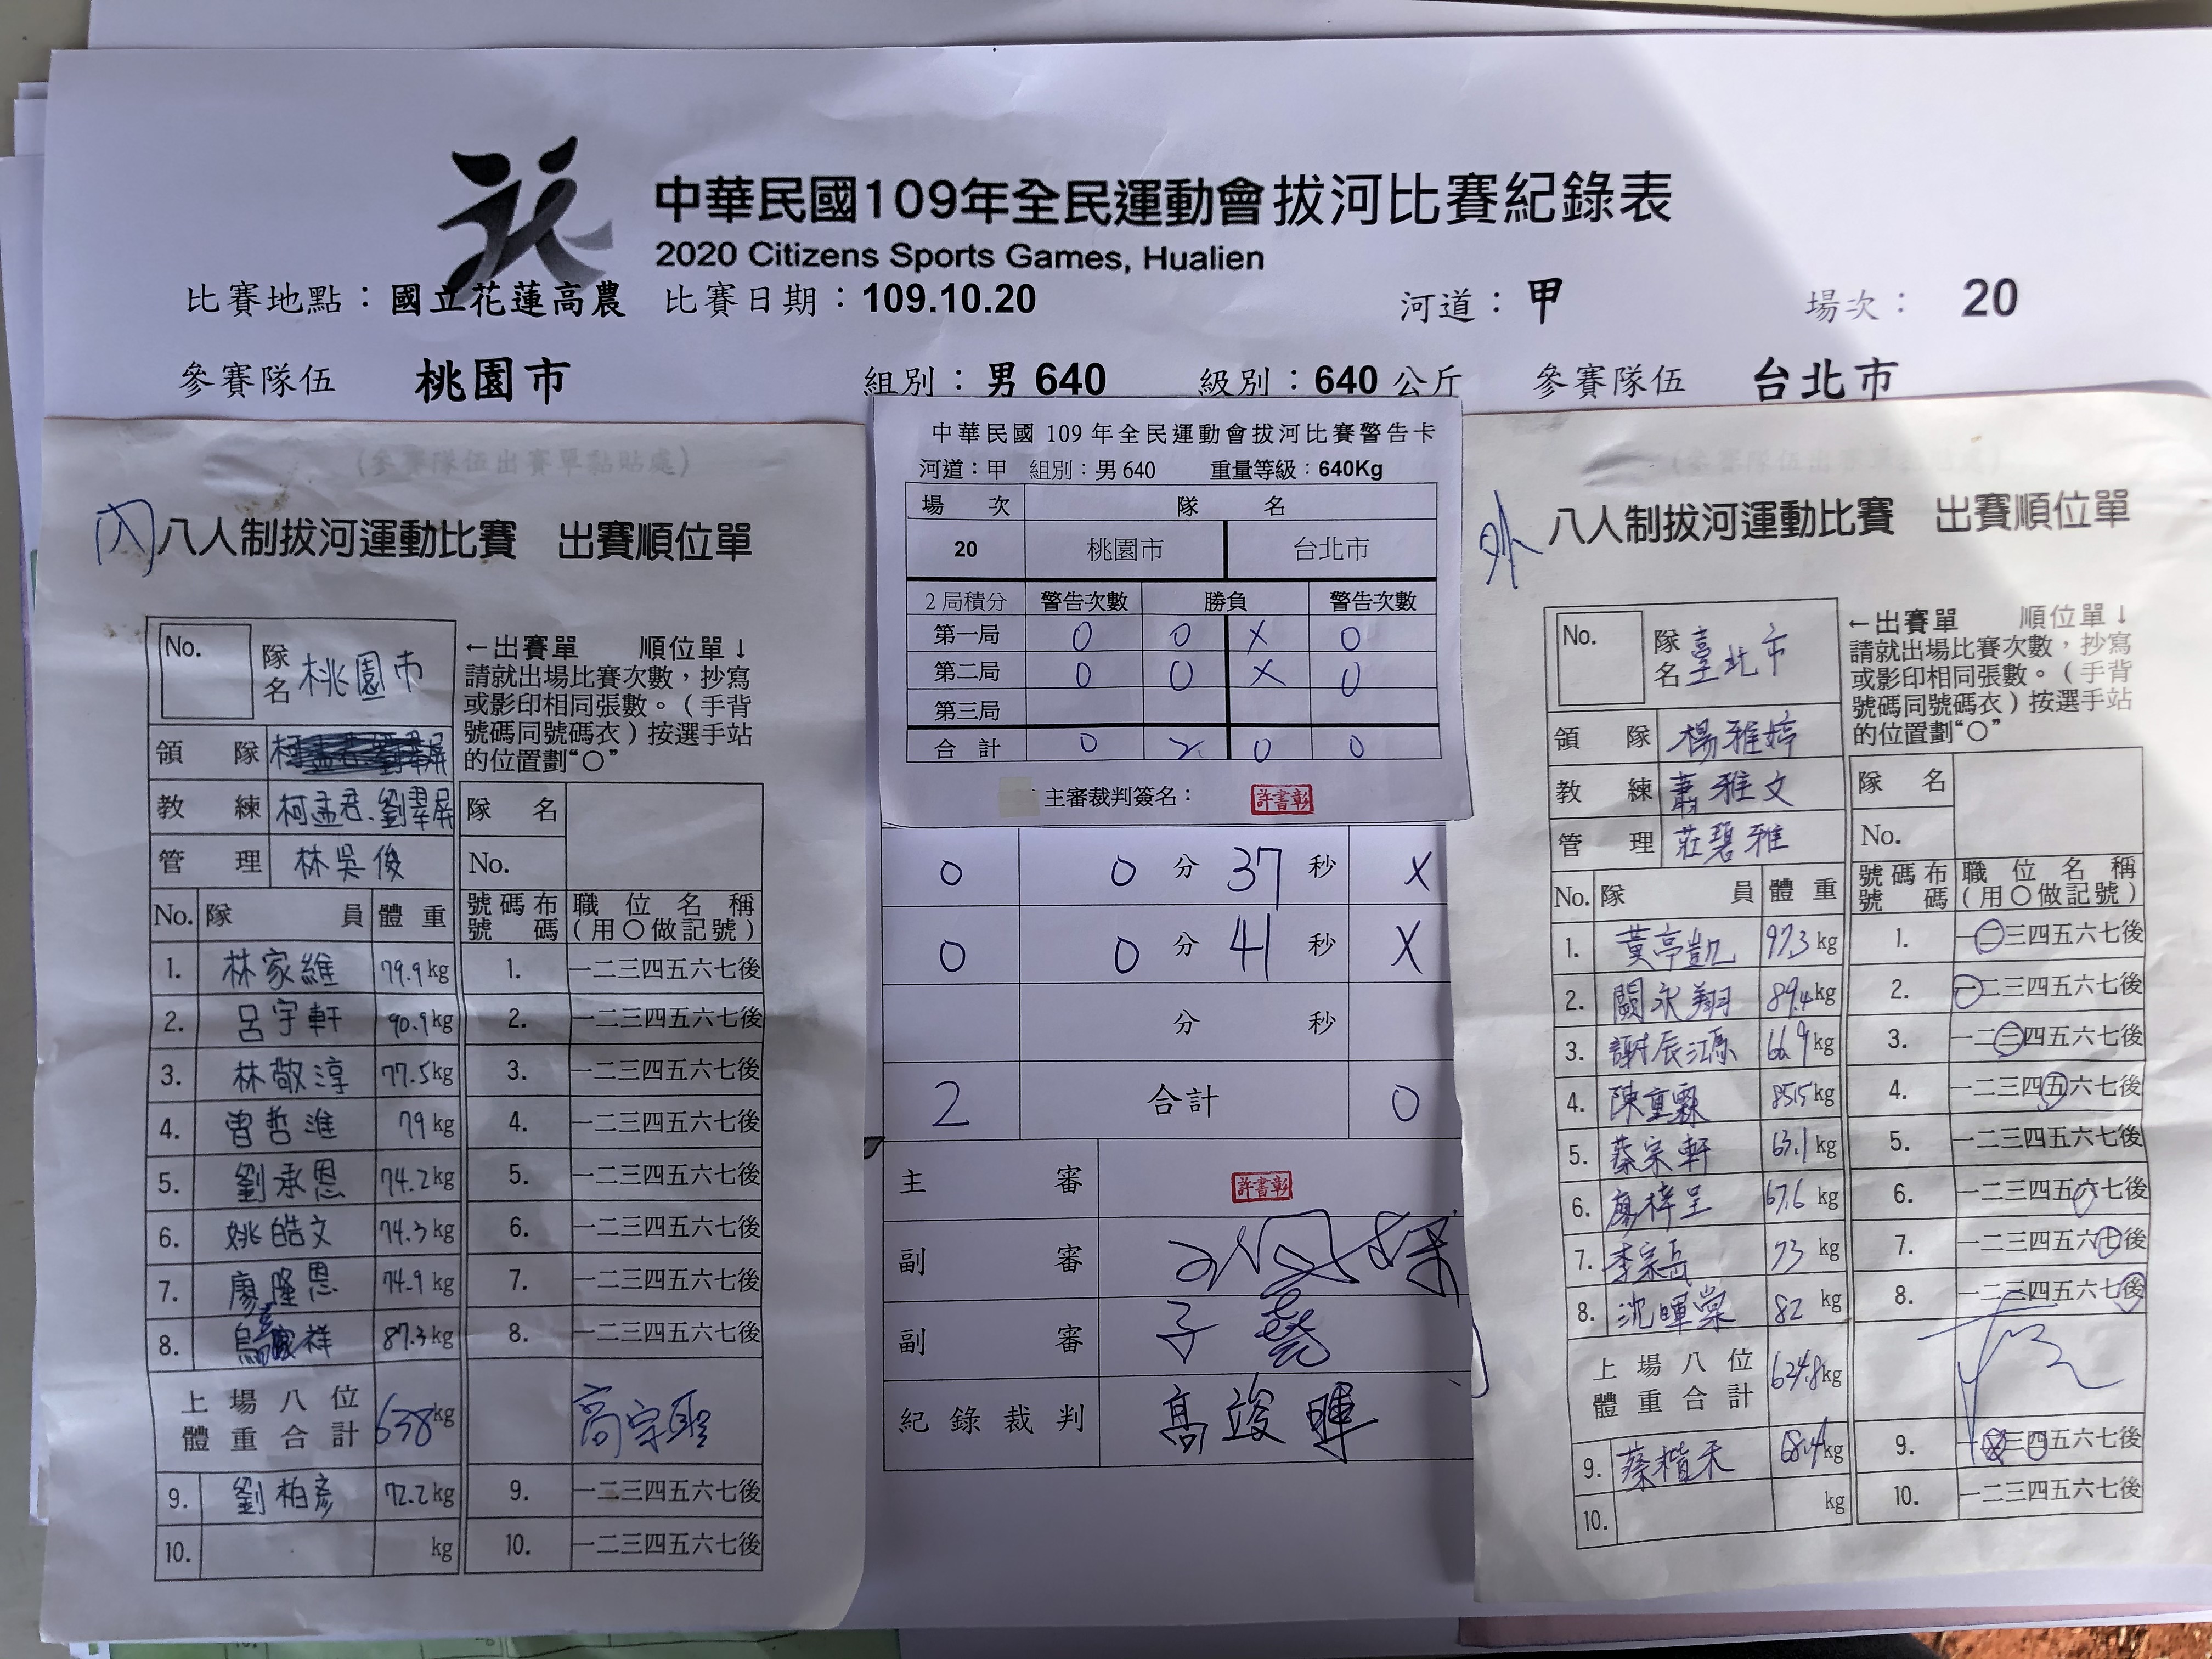 中華民國109年全民運動會拔河比賽紀錄表
2020 Citizens Sports Games, Hualien
比賽地點：國立花蓮高農 比賽日期：109.10.20 河道：甲 場次： 20
參賽隊伍 桃園市 組別：男 640 級別：640 公斤 參賽隊伍 台北市
(參賽隊伍出賽單黏貼處)
內
八人制拔河運動比賽 出賽順位單
No. 隊名 桃園市
←出賽單 順位單↓
請就出場比賽次數，抄寫
或影印相同張數。（手背
號碼同號碼衣）按選手站
的位置劃“○”
領 隊
教 練 柯孟君、劉翠屏
管 理 林吳俊
隊 名
No.
No. 隊 員 體 重 號碼布號碼 職位名稱(用○做記號)
1. 林家維 79.9kg 1. 一二三四五六七後
2. 呂宇軒 90.9kg 2. 一二三四五六七後
3. 林敬淳 77.5kg 3. 一二三四五六七後
4. 曾哲進 79kg 4. 一二三四五六七後
5. 劉承恩 74.2kg 5. 一二三四五六七後
6. 姚皓文 74.3kg 6. 一二三四五六七後
7. 廖隆恩 74.9kg 7. 一二三四五六七後
8. 祥 87.3kg 8. 一二三四五六七後
上場八位
體重合計 638kg
高宗
9. 劉柏彥 72.2kg 9. 一二三四五六七後
10. kg 10. 一二三四五六七後
中華民國 109 年全民運動會拔河比賽警告卡
河道：甲 組別：男 640 重量等級：640Kg
場 次 隊 名
20 桃園市 台北市
2 局積分 警告次數 勝負 警告次數
第一局 0 0 X 0
第二局 0 0 X 0
第三局
合 計 0 2 0 0
主審裁判簽名： 許書彰
0 0 分 37 秒 X
0 0 分 41 秒 X
分 秒
2 合計 0
主 審 許書彰
副 審
副 審
紀錄裁判 高竣暉
外
八人制拔河運動比賽 出賽順位單
No. 隊名 臺北市
←出賽單 順位單↓
請就出場比賽次數，抄寫
或影印相同張數。（手背
號碼同號碼衣）按選手站
的位置劃“○”
領 隊 楊雅婷
教 練 蕭雅文
管 理 莊碧雅
隊 名
No.
No. 隊 員 體 重 號碼布號碼 職位名稱(用○做記號)
1. 黃亭凱 97.3kg 1. 一二三四五六七後
2. 闕永翔 89.4kg 2. 一二三四五六七後
3. 謝辰鴻 66.9kg 3. 一二三四五六七後
4. 陳重 85.5kg 4. 一二三四五六七後
5. 蔡宗軒 63.1kg 5. 一二三四五六七後
6. 廖梓呈 67.6kg 6. 一二三四五六七後
7. 李宗岳 73kg 7. 一二三四五六七後
8. 沈暉棠 82kg 8. 一二三四五六七後
上場八位
體重合計 624.8kg
9. 蔡楷禾 68.4kg 9. 一二三四五六七後
10. kg 10. 一二三四五六七後